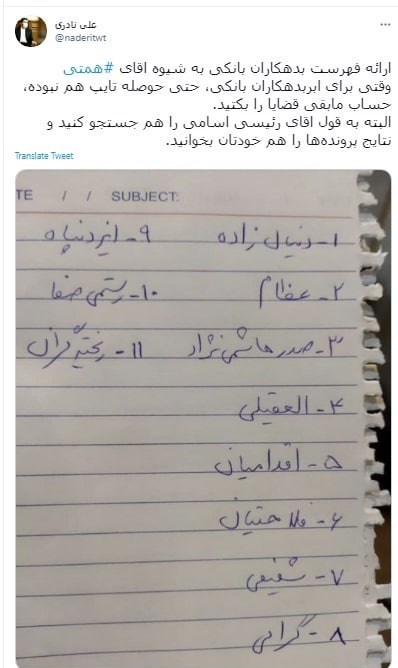 علی نادری
@naderitwt
ارائه فهرست بدهکاران بانکی به شیوه اقای #همتی
وقتی برای ابربدهکاران بانکی، حتی حوصله تایپ هم نبوده،
حساب مابقی قضایا را بکنید.
البته به قول اقای رئیسی اسامی را هم جستجو کنید و
نتایج پرونده‌ها را هم خودتان بخوانید.
Translate Tweet
TE / / SUBJECT:
۱- دنیال زاده
۹- ایزدپناه
۲- عظام
۱۰- رستمی صفا
۳- صدرهاشمی نژاد
۱۱- ریخته گران
۴- العقیلی
۵- اقدامیان
۶- فلاحتیان
۷- شفیعی
۸- گرامی